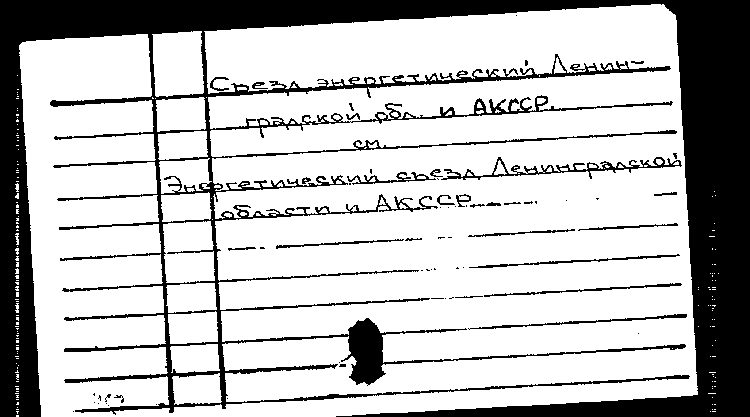 Съезд энергетический Ленин-
градской обл. и АКССР.
см.
Энергетический съезд Ленинградской
области и АКССР